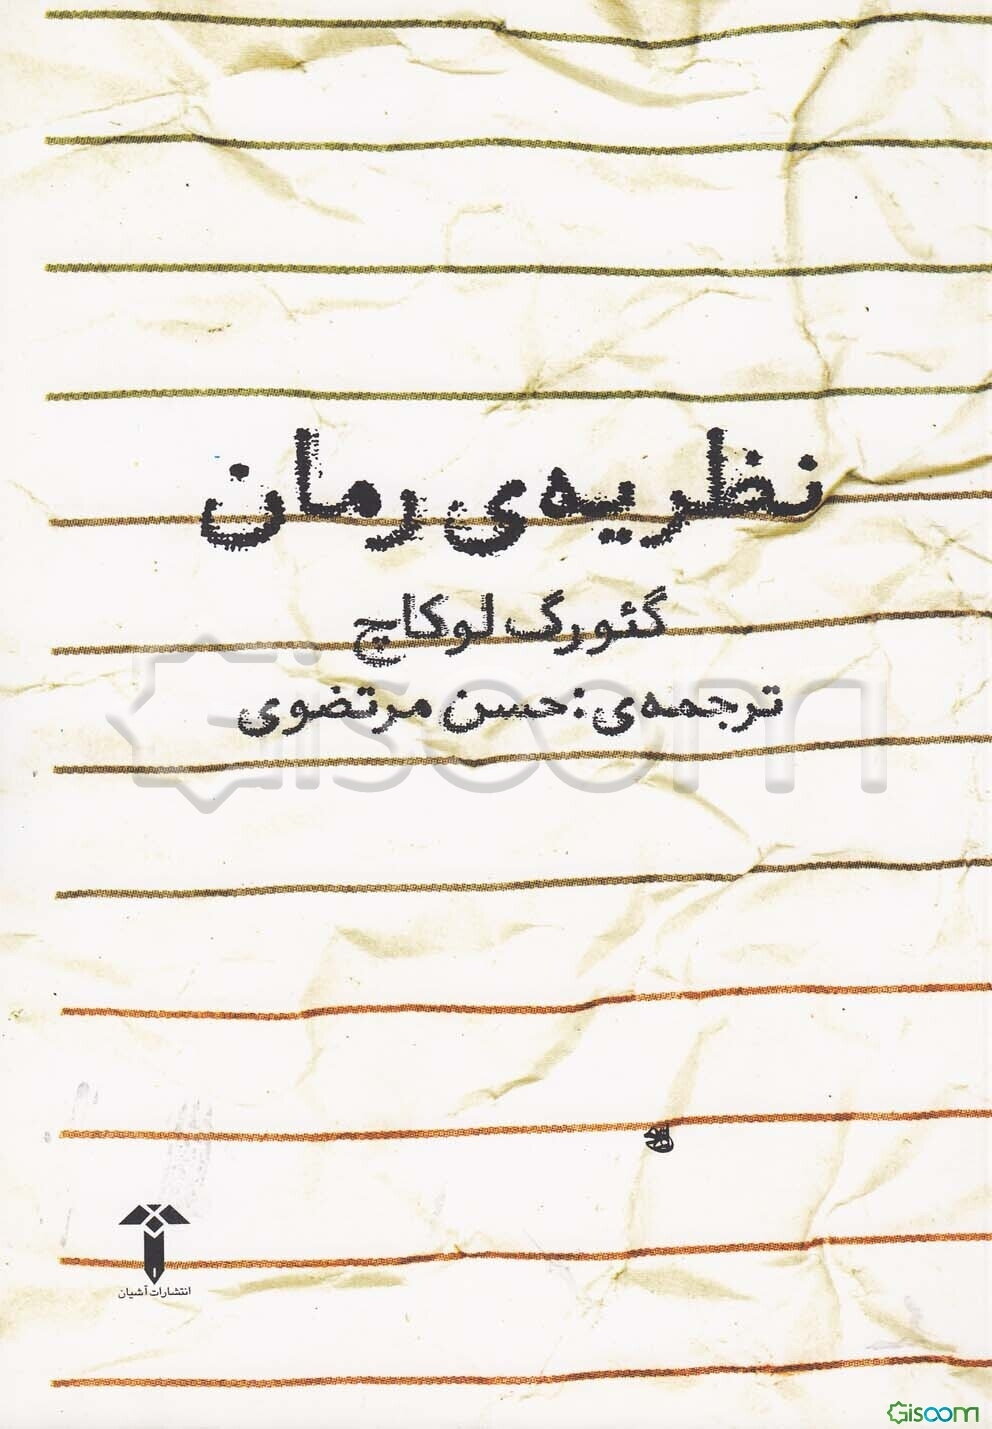 نظریه‌ی رمان
گئورگ لوکاچ
ترجمه‌ی: حسن مرتضوی
Gisoom
انتشارات آشیان
Gisoom